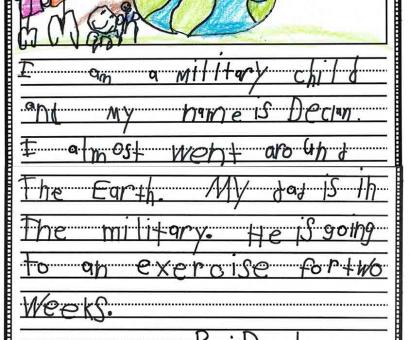 I am a military child
and My name is Declan.
I almost went around
The Earth. My dad is in
The military. He is going
to an exercise for two
Weeks.